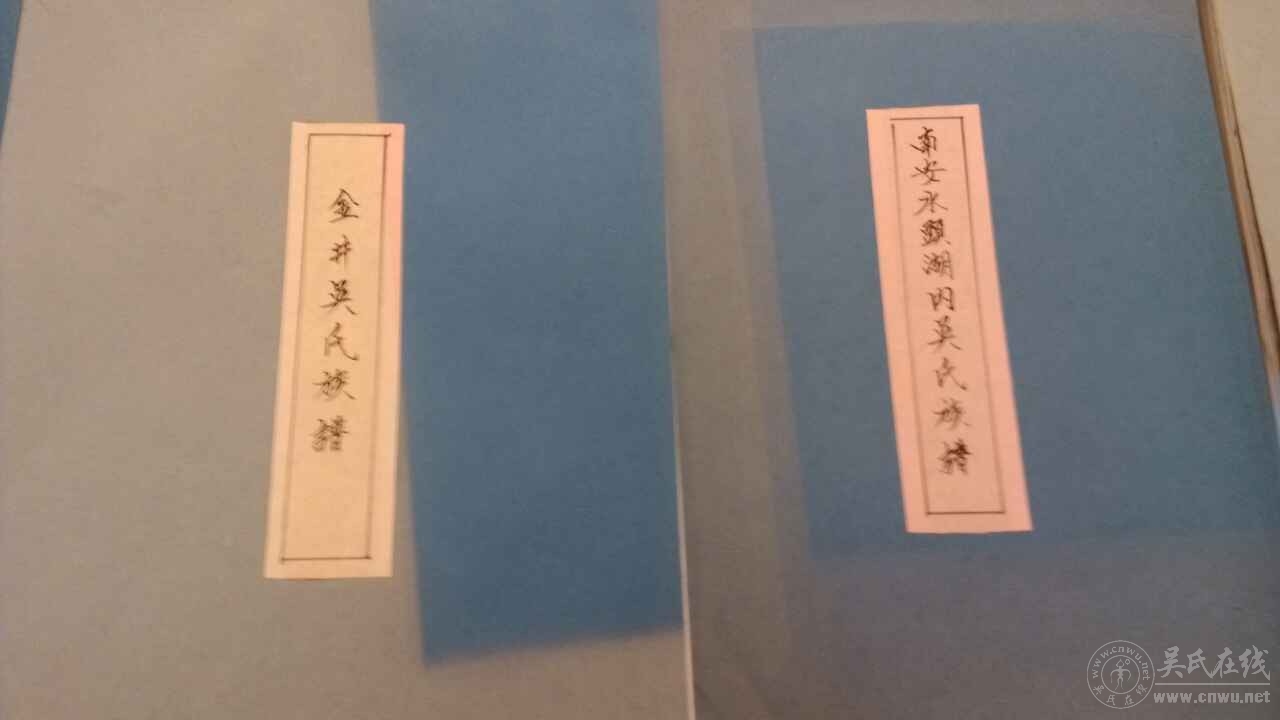 金井吴氏族譜
南安水頭湖内吴氏族譜
吴氏在线
www.cnwu.net
www.cnwu.net
吴氏在线